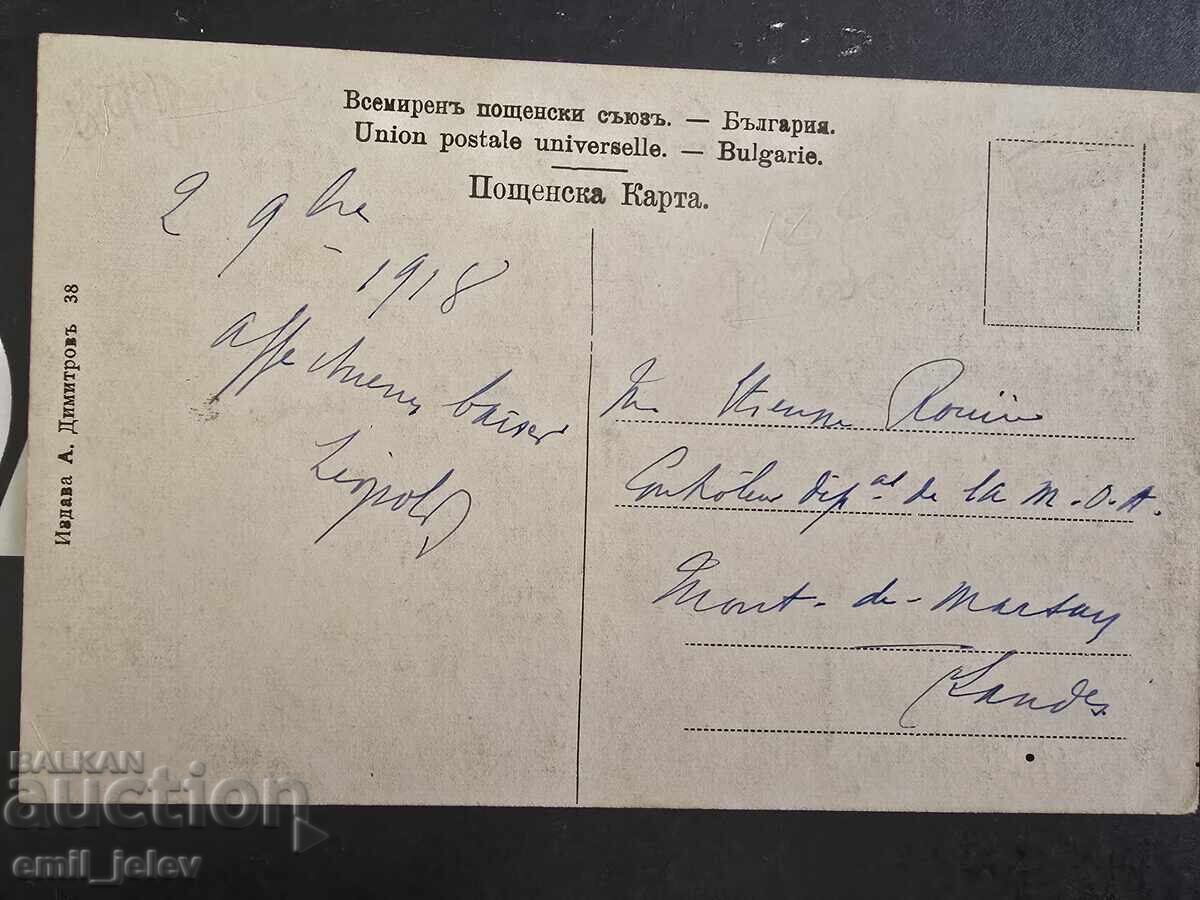 Всемиренъ пощенски съюзъ. — България.
Union postale universelle. — Bulgarie.
Пощенска Карта.
2 9bre
1918
affectueux baiser
Léopold
Издава А. Димитровъ 38
Mr Etienne
Contrôleur dépal de la M.O.A.
Mont-de-Marsan
Landes
BALKAN
auction
emil_jelev